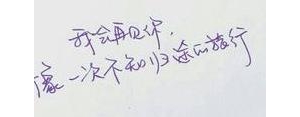 我会再见你,
像一次不知归途的旅行